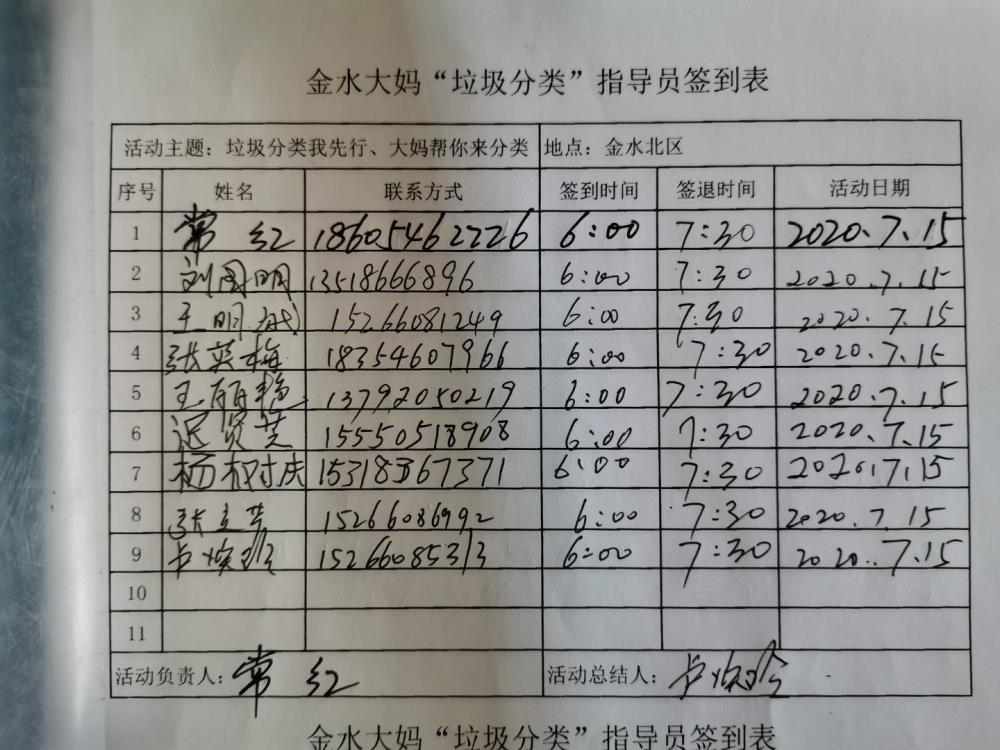 金水大妈“垃圾分类”指导员签到表
活动主题：垃圾分类我先行、大妈帮你来分类 地点：金水北区
序号 姓名 联系方式 签到时间 签退时间 活动日期
1 常红 18605462226 6:00 7:30 2020.7.15
2 刘国明 13518666896 6:00 7:30 2020.7.15
3 王明成 15266081249 6:00 7:30 2020.7.15
4 张英梅 18354607966 6:00 7:30 2020.7.15
5 王丽艳 13792050219 6:00 7:30 2020.7.15
6 迟贤芝 15550518908 6:00 7:30 2020.7.15
7 杨树庆 15318367371 6:00 7:30 2020.7.15
8 张立芸 15266086992 6:00 7:30 2020.7.15
9 卢焕玲 15266085313 6:00 7:30 2020.7.15
10
11
活动负责人：常红 活动总结人：卢焕玲
金水大妈“垃圾分类”指导员签到表